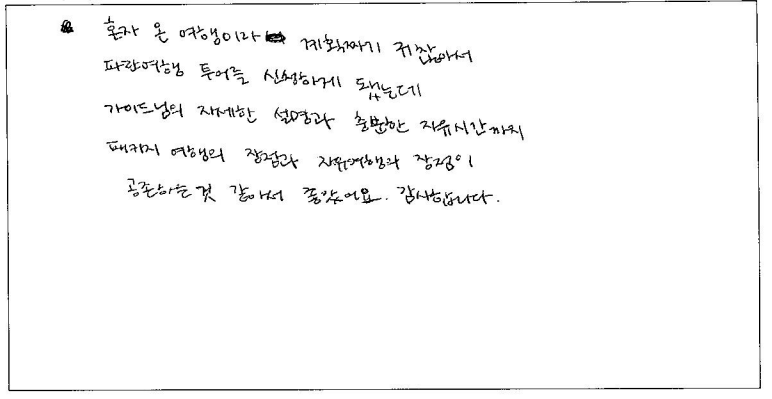 혼자 온 여행이라 계획짜기 귀찮아서
파란여행 투어를 신청하게 됐는데
가이드님의 자세한 설명과 충분한 자유시간까지
패키지 여행의 장점과 자유여행의 장점이
공존하는것 같아서 좋았어요. 감사합니다.